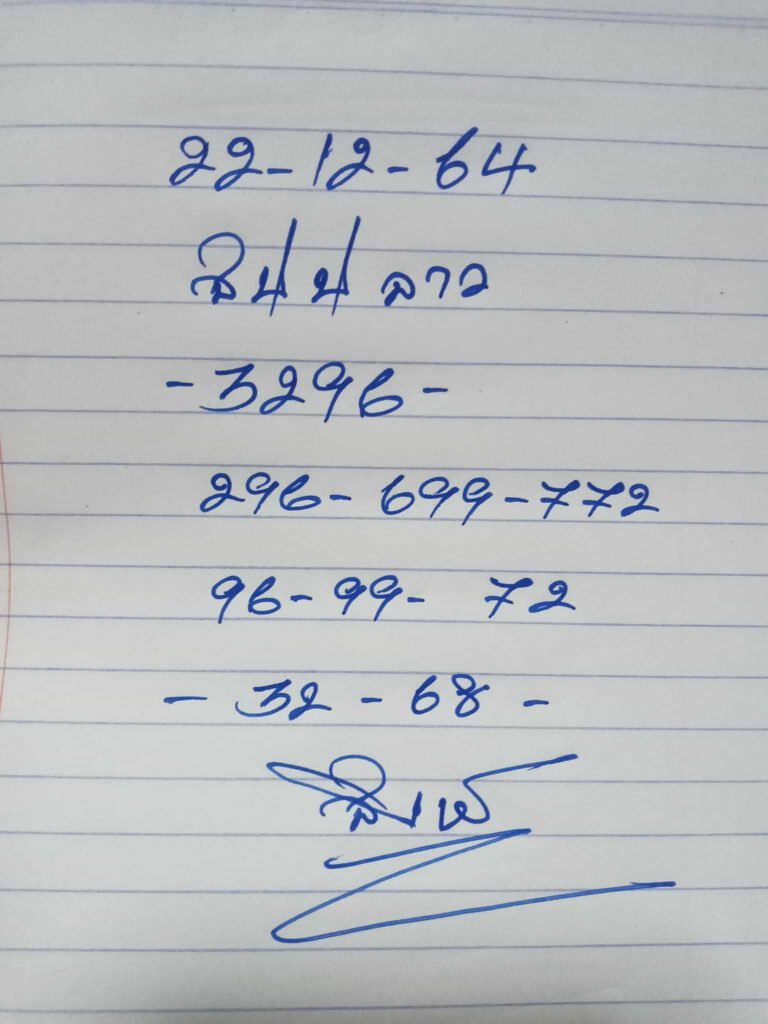 22-12-64
ลาว
-3296-
296-699-772
96-99-72
-32-68-